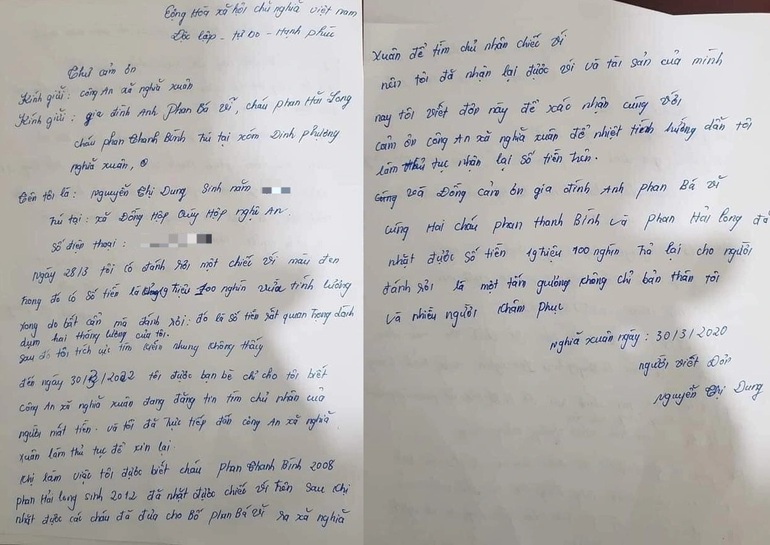 Cộng Hòa xã hội chủ nghĩa việt nam
Độc lập - tự Do - Hạnh phúc
Thư cảm ơn
Kính gửi: công An xã nghĩa xuân
Kính gửi: gia đình Anh Phan Bá vĩ, cháu phan Hải Long
cháu phan Thanh Bính trú tại xóm Đình phượng
nghĩa xuân,
Tên tôi là: nguyễn Thị Dung Sinh năm
Trú tại: xã Đồng Hợp Qùy Hợp nghệ An.
Số điện thoại:
ngày 28/3 tôi có đánh rơi một chiếc ví màu đen
trong đó có số tiền là 19 triệu 100 nghìn vừa lĩnh lương
xong do bất cẩn mà đánh rơi: đó là số tiền rất quan trọng dành
dụm hai tháng lương của tôi.
sau đó tôi tích cực tìm kiếm nhưng không thấy
đến ngày 30/3/2022 tôi được bạn bè chỉ cho tôi biết
công An xã nghĩa xuân đang đăng tin tìm chủ nhân của
người mất tiền. và tôi đã trực tiếp đến công An xã nghĩa
xuân làm thủ tục để xin lại.
Khi làm việc tôi được biết cháu phan Thanh Bính 2008
phan Hải long sinh 2012 đã nhặt được chiếc ví trên sau khi
nhặt được các cháu đã đưa cho Bố phan Bá vĩ ra xã nghĩa
Xuân để tìm chủ nhân chiếc ví
nên tôi đã nhận lại được ví và tài sản của mình
nay tôi viết đơn này để xác nhận cùng với
cảm ơn công An xã nghĩa xuân đã nhiệt tình hướng dẫn tôi
làm thủ tục nhận lại số tiền trên.
và Đồng cảm ơn gia đình Anh phan Bá vĩ
cùng Hai cháu phan thanh Bính và phan Hải Long đã
nhặt được số tiền 19 triệu 100 nghìn trả lại cho người
đánh rơi là một tấm gương không chỉ bản thân tôi
và nhiều người Khâm phục.
nghĩa xuân ngày: 30/3/2020
người viết Đơn
nguyễn Thị Dung